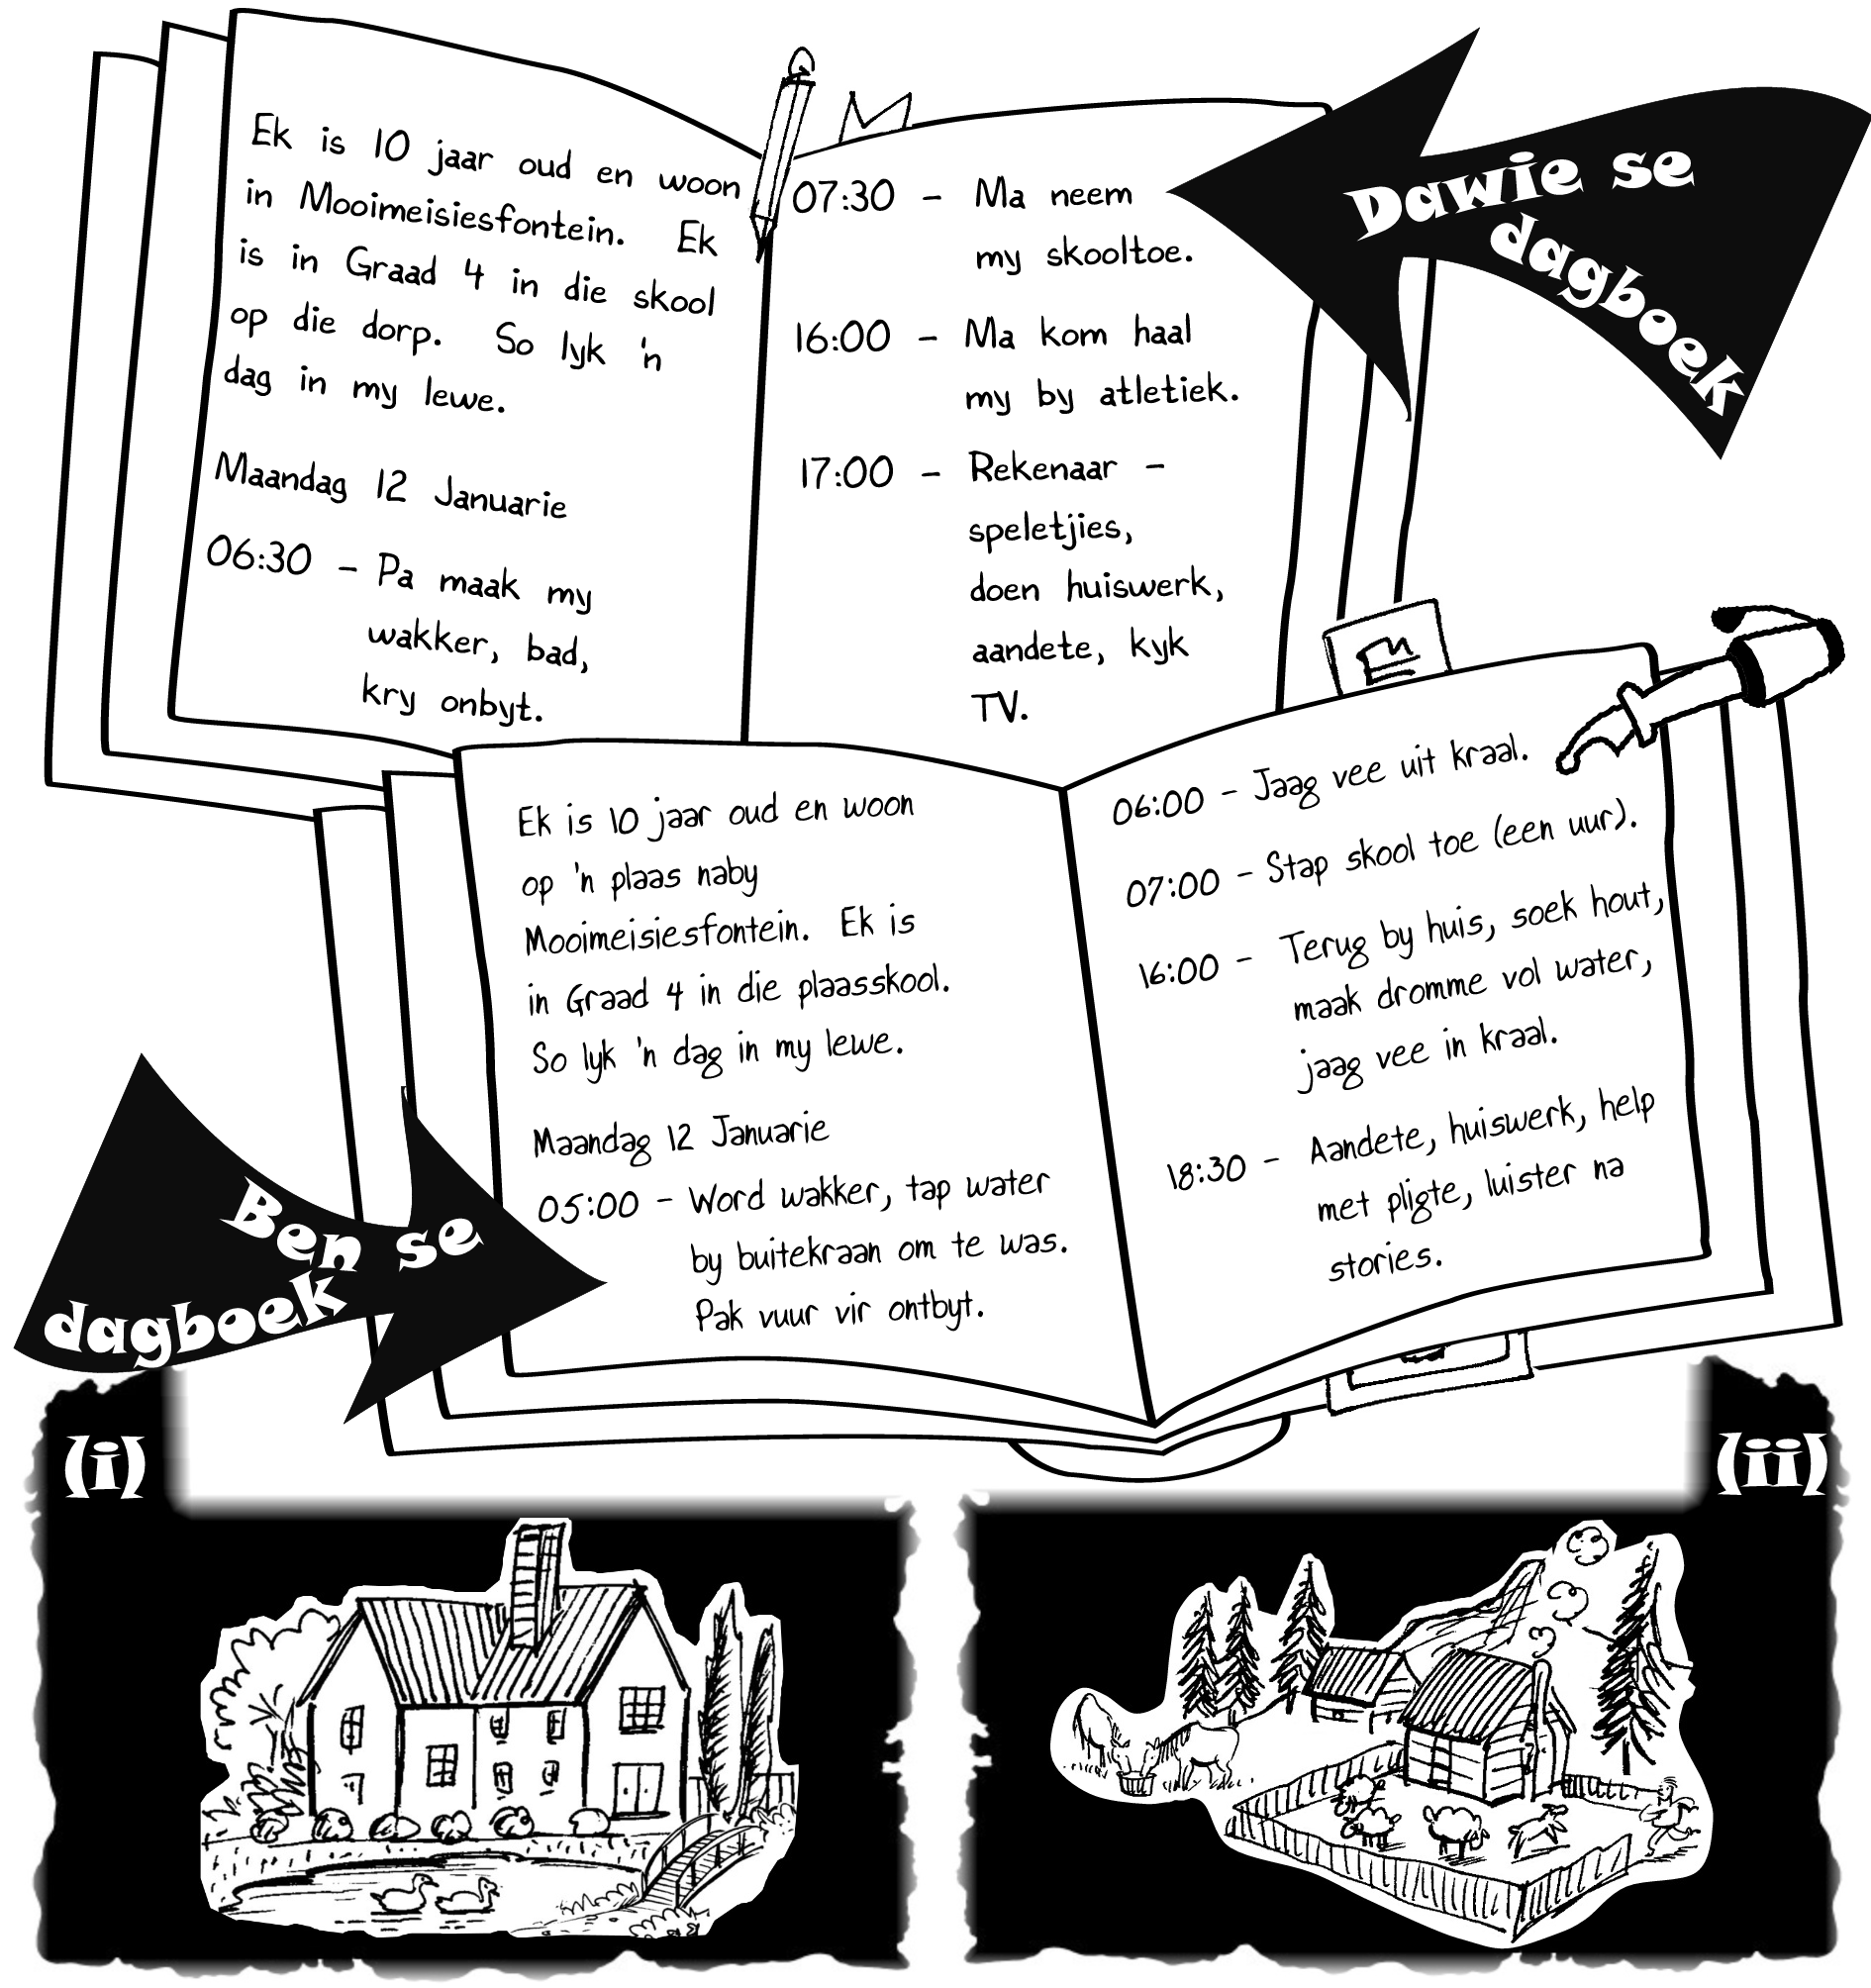 Ek is 10 jaar oud en woon
in Mooimeisiesfontein. Ek
is in Graad 4 in die skool
op die dorp. So lyk 'n
dag in my lewe.
Maandag 12 Januarie
06:30 - Pa maak my
wakker, bad,
kry onbyt.
07:30 - Ma neem
my skooltoe.
16:00 - Ma kom haal
my by atletiek.
17:00 - Rekenaar -
speletjies,
doen huiswerk,
aandete, kyk
TV.
Dawie se
dagboek
Ek is 10 jaar oud en woon
op 'n plaas naby
Mooimeisiesfontein. Ek is
in Graad 4 in die plaasskool.
So lyk 'n dag in my lewe.
Maandag 12 Januarie
05:00 - Word wakker, tap water
by buitekraan om te was.
Pak vuur vir ontbyt.
06:00 - Jaag vee uit kraal.
07:00 - Stap skool toe (een uur).
16:00 - Terug by huis, soek hout,
maak dromme vol water,
jaag vee in kraal.
18:30 - Aandete, huiswerk, help
met pligte, luister na
stories.
Ben se
dagboek
(i)
(ii)